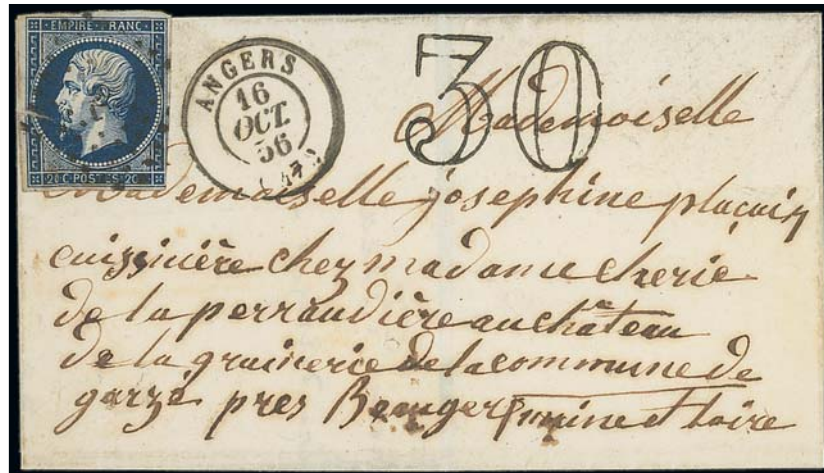 EMPIRE FRANC
20 C POSTES 20
ANGERS
16
OCT.
56
30
Mademoiselle
Mademoiselle josephine plaçais
cuissinière chez madame cherie
de la perraudière au château
de la grainerie de la commune de
garzé pres Beauger maine et loire